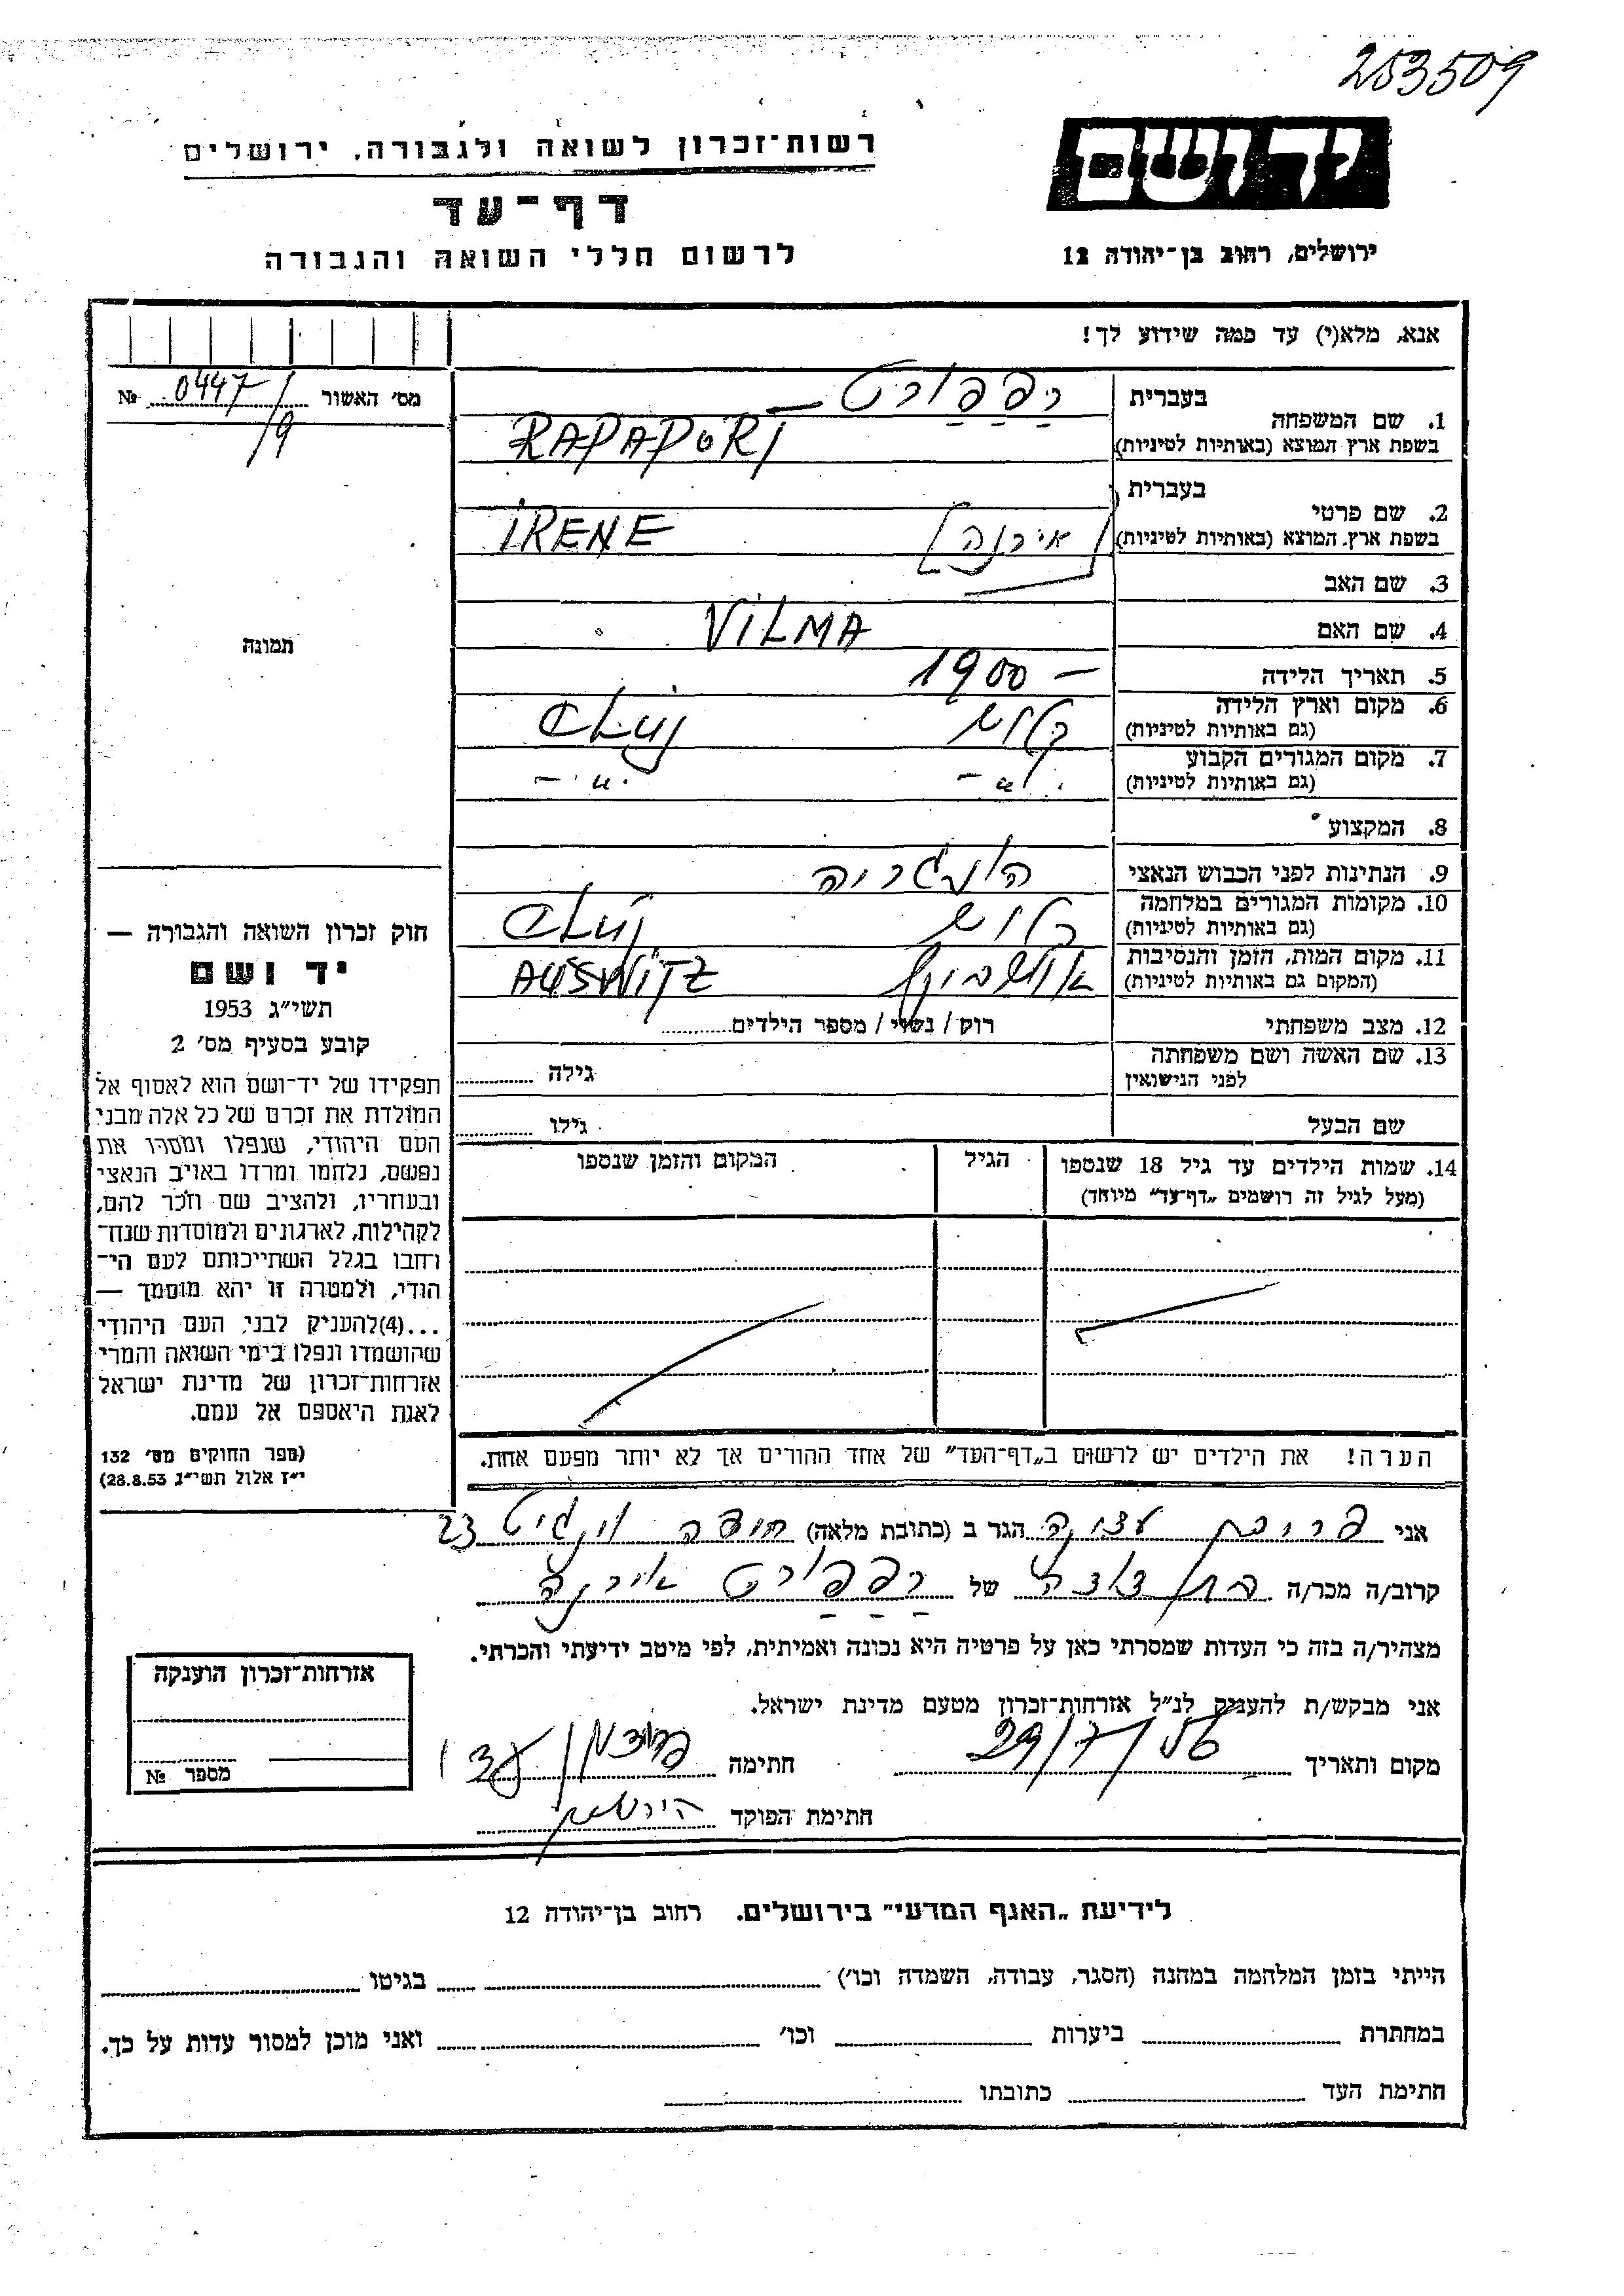 253509
יד ושם
ירושלים, רחוב בן־יהודה 12
רשות־זכרון לשואה ולגבורה, ירושלים
דף־עד
לרשום חללי השואה והגבורה
אנא, מלא(י) עד כמה שידוע לך!
מס׳ האשור № 0447/
/9
1. שם המשפחה
בעברית רפפורט
בשפת ארץ המוצא (באותיות לטיניות) RAPAPORT
2. שם פרטי
בעברית
בשפת ארץ המוצא (באותיות לטיניות) [אירנה] IRENE
3. שם האב
4. שם האם VILMA
5. תאריך הלידה 1900 –
6. מקום וארץ הלידה
(גם באותיות לטיניות) קלוש CLUJ
7. מקום המגורים הקבוע
(גם באותיות לטיניות) -״- -״-
8. המקצוע
9. הנתינות לפני הכבוש הנאצי הונגריה
10. מקומות המגורים במלחמה
(גם באותיות לטיניות) קלוש CLUJ
11. מקום המות, הזמן והנסיבות
(המקום גם באותיות לטיניות) אושביץ AUSWITZ
12. מצב משפחתי רווק / נשוי / מספר הילדים
13. שם האשה ושם משפחתה
לפני הנישואין גילה
שם הבעל גילו
14. שמות הילדים עד גיל 18 שנספו
(מעל לגיל זה רושמים „דף־עד״ מיוחד)
הגיל
המקום והזמן שנספו
הערה! את הילדים יש לרשום ב„דף־העד״ של אחד ההורים אך לא יותר מפעם אחת.
תמונה
חוק זכרון השואה והגבורה —
יד ושם
תשי״ג 1953
קובע בסעיף מס׳ 2
תפקידו של יד־ושם הוא לאסוף אל
המולדת את זכרם של כל אלה מבני
העם היהודי, שנפלו ומסרו את
נפשם, נלחמו ומרדו באויב הנאצי
ובעוזריו, ולהציב שם וזכר להם,
לקהילות, לארגונים ולמוסדות שנח־
רחבו בגלל השתייכותם לעם הי־
הודי, ולמטרה זו יהא מוסמך —
...(4)להעניק לבני העם היהודי
שהושמדו ונפלו בימי השואה והמרי
אזרחות־זכרון של מדינת ישראל
לאות היאספם אל עמם.
(ספר החוקים מס׳ 132
י״ז אלול תשי״ג 28.8.53)
אני הגר ב (כתובת מלאה) חיפה 23
קרוב/ה מכר/ה של רפפורט אירנה
מצהיר/ה בזה כי העדות שמסרתי כאן על פרטיה היא נכונה ואמיתית, לפי מיטב ידיעתי והכרתי.
אני מבקש/ת להעניק לנ״ל אזרחות־זכרון מטעם מדינת ישראל.
מקום ותאריך 29/7/56 חתימה
חתימת הפוקד
אזרחות־זכרון הוענקה
מספר №
לידיעת „האגף המדעי״ בירושלים. רחוב בן־יהודה 12
הייתי בזמן המלחמה במחנה (הסגר, עבודה, השמדה וכו׳) בגיטו
במחתרת ביערות וכו׳ ואני מוכן למסור עדות על כך.
חתימת העד כתובתו